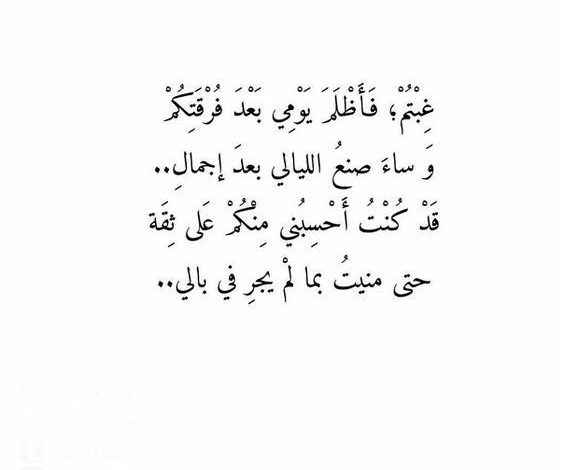 غِبْتُمْ؛ فَأَظْلَمَ يَوْمِي بَعْدَ فُرْقَتِكُمْ
وَ ساءَ صنعُ الليالي بعدَ إجمالِ..
قَدْ كُنْتُ أَحْسِبُني مِنْكُمْ عَلى ثِقَة
حتى منيتُ بما لمْ يجرِ في بالي..